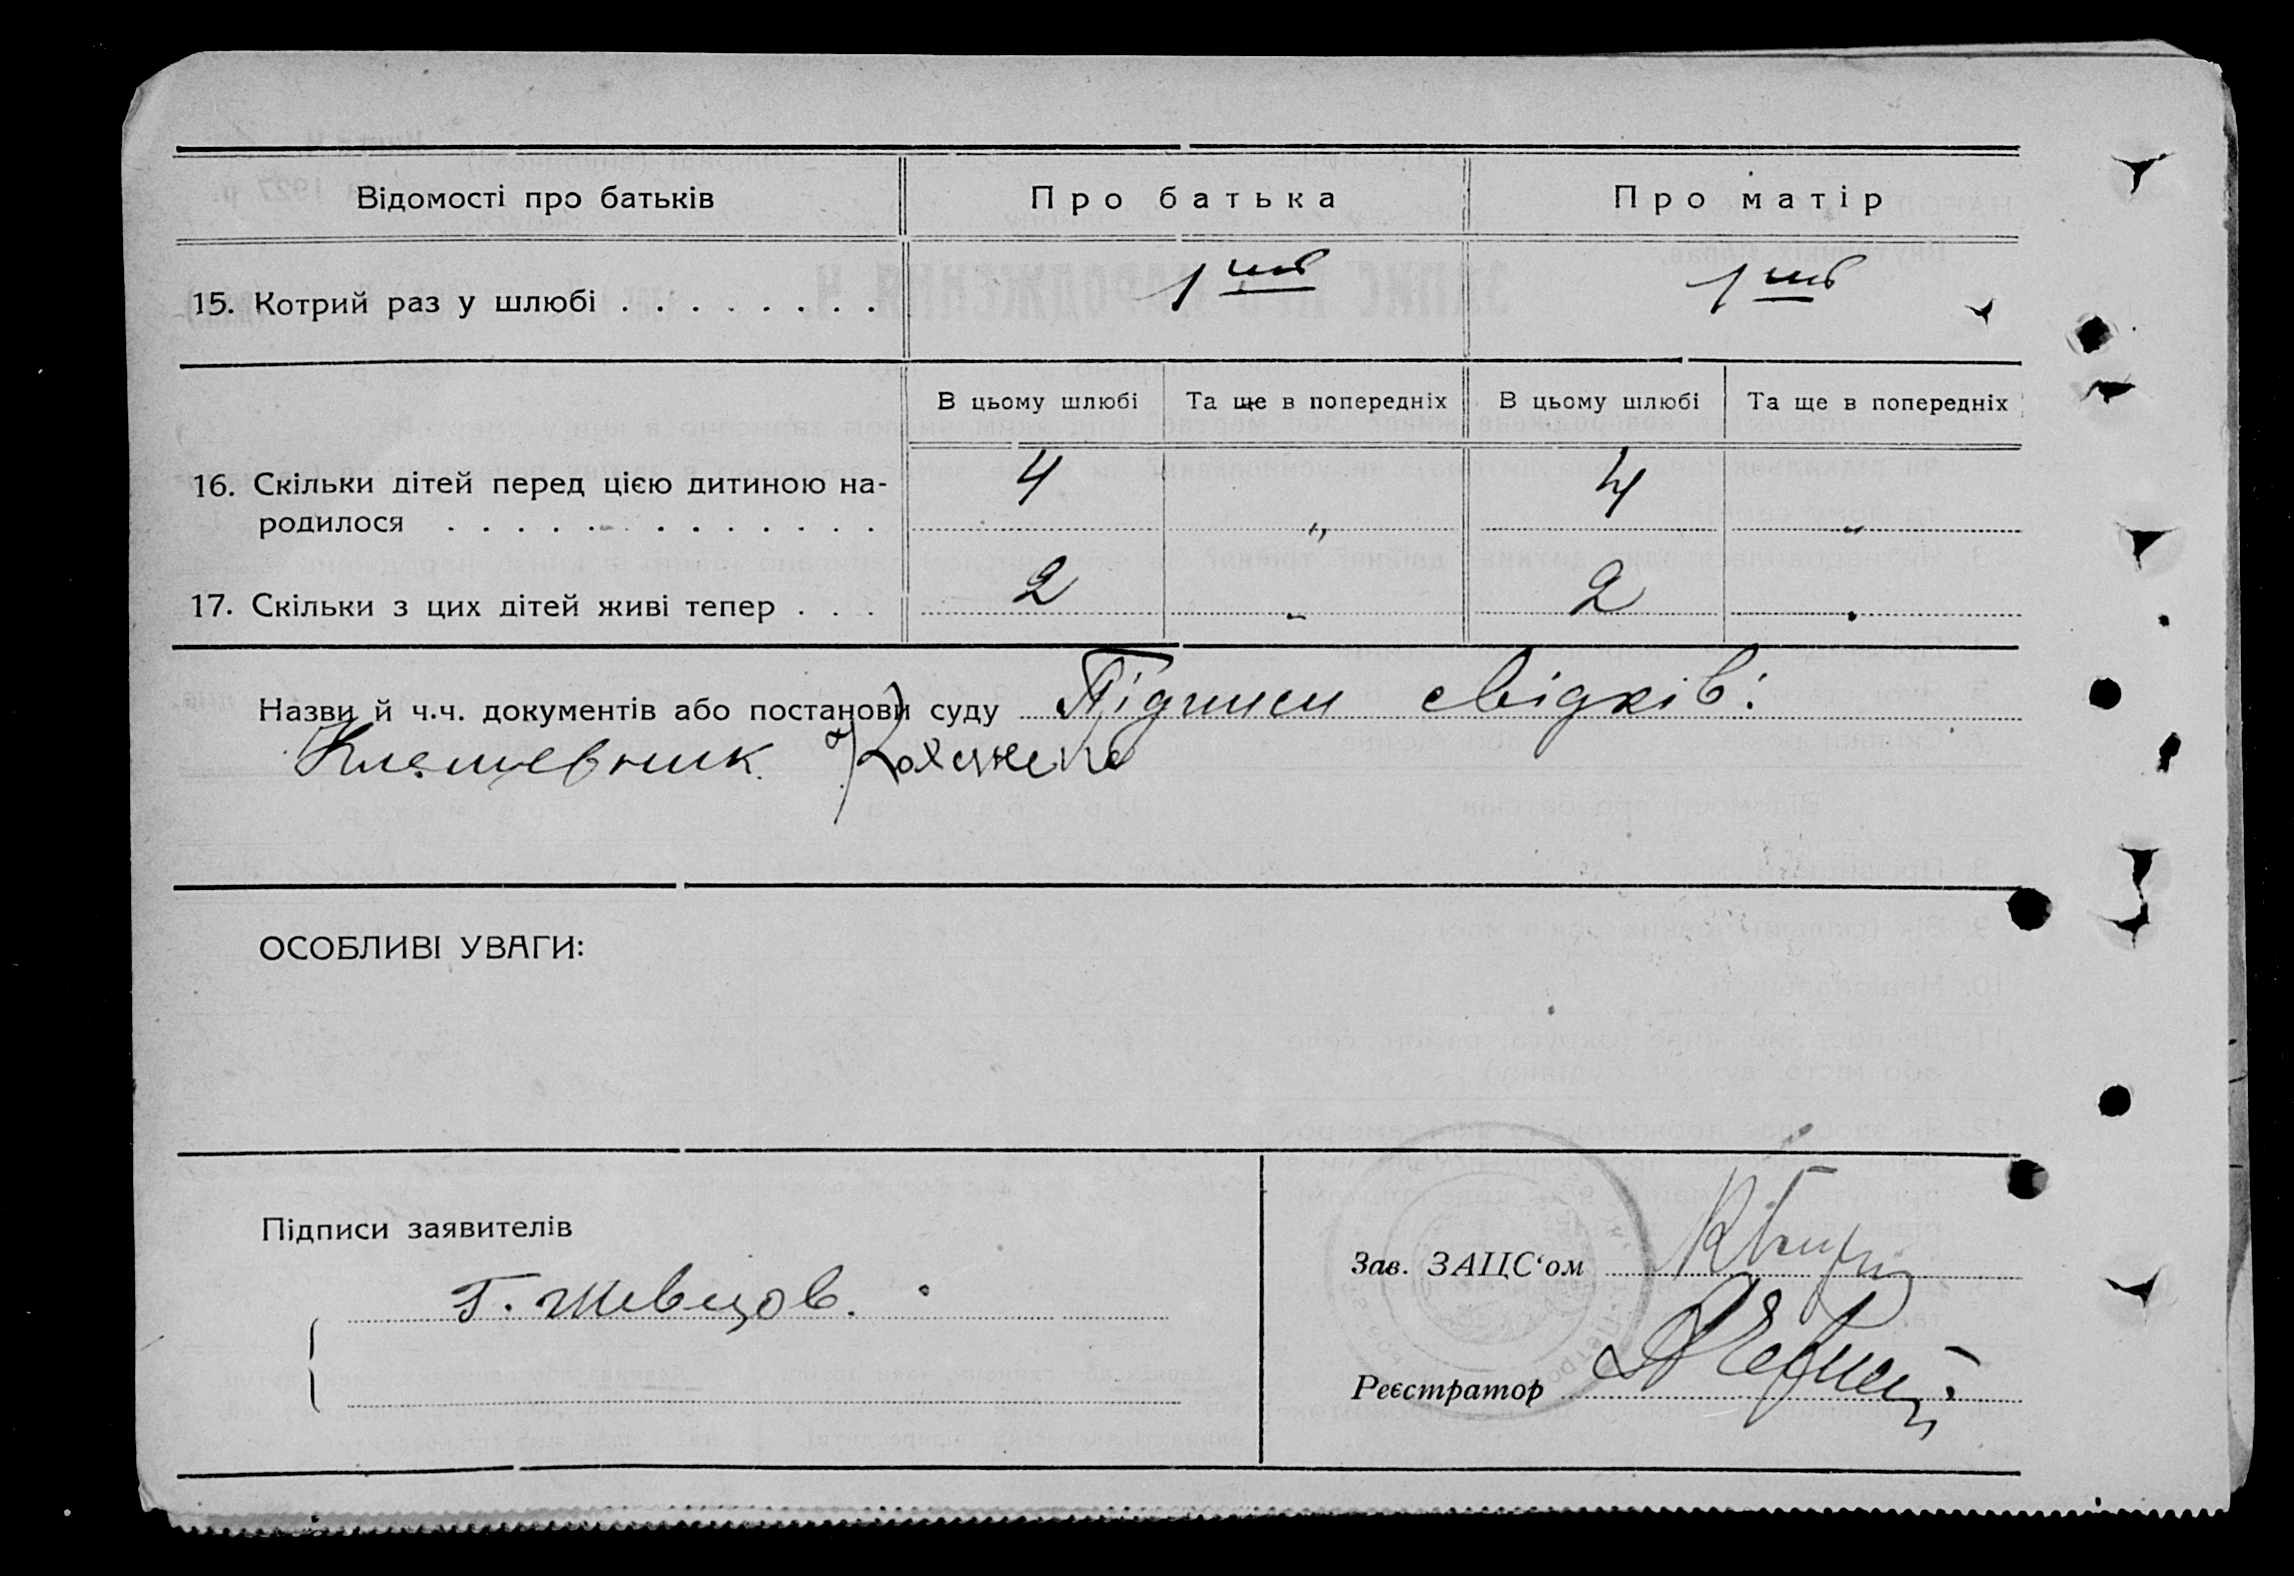 Відомості про батьків Про батька Про матір
15. Котрий раз у шлюбі . . . . . . . . 1 ший 1 ший
В цьому шлюбі Та ще в попередніх В цьому шлюбі Та ще в попередніх
16. Скільки дітей перед цією дитиною на-
родилося . . . . . . . . . . . . . 4 " 4 "
17. Скільки з цих дітей живі тепер . . . 2 " 2 "
Назви й ч.ч. документів або постанови суду Підписи свідків:
ОСОБЛИВІ УВАГИ:
Підписи заявителів
Г. Шевцов.
Зав. ЗАЦС'ом
Реєстратор